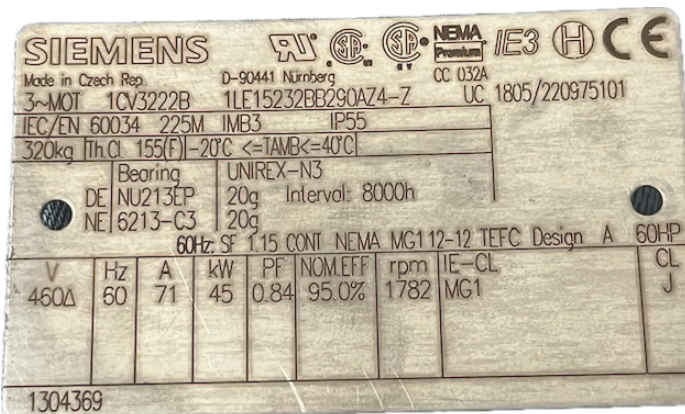 SIEMENS NEMA Premium IE3 H CE
Made in Czech Rep. D-90441 Nürnberg CC 032A
3~MOT 1CV3222B 1LE15232BB290AZ4-Z UC 1805/220975101
IEC/EN 60034 225M IMB3 IP55
320kg Th.Cl. 155(F) -20°C <=TAMB<=40°C
Bearing UNIREX-N3
DE NU213EP 20g Interval: 8000h
NE 6213-C3 20g
60Hz: SF 1.15 CONT NEMA MG1 12-12 TEFC Design A 60HP
V Hz A kW PF NOM.EFF rpm IE-CL CL
460Δ 60 71 45 0.84 95.0% 1782 MG1 J
1304369